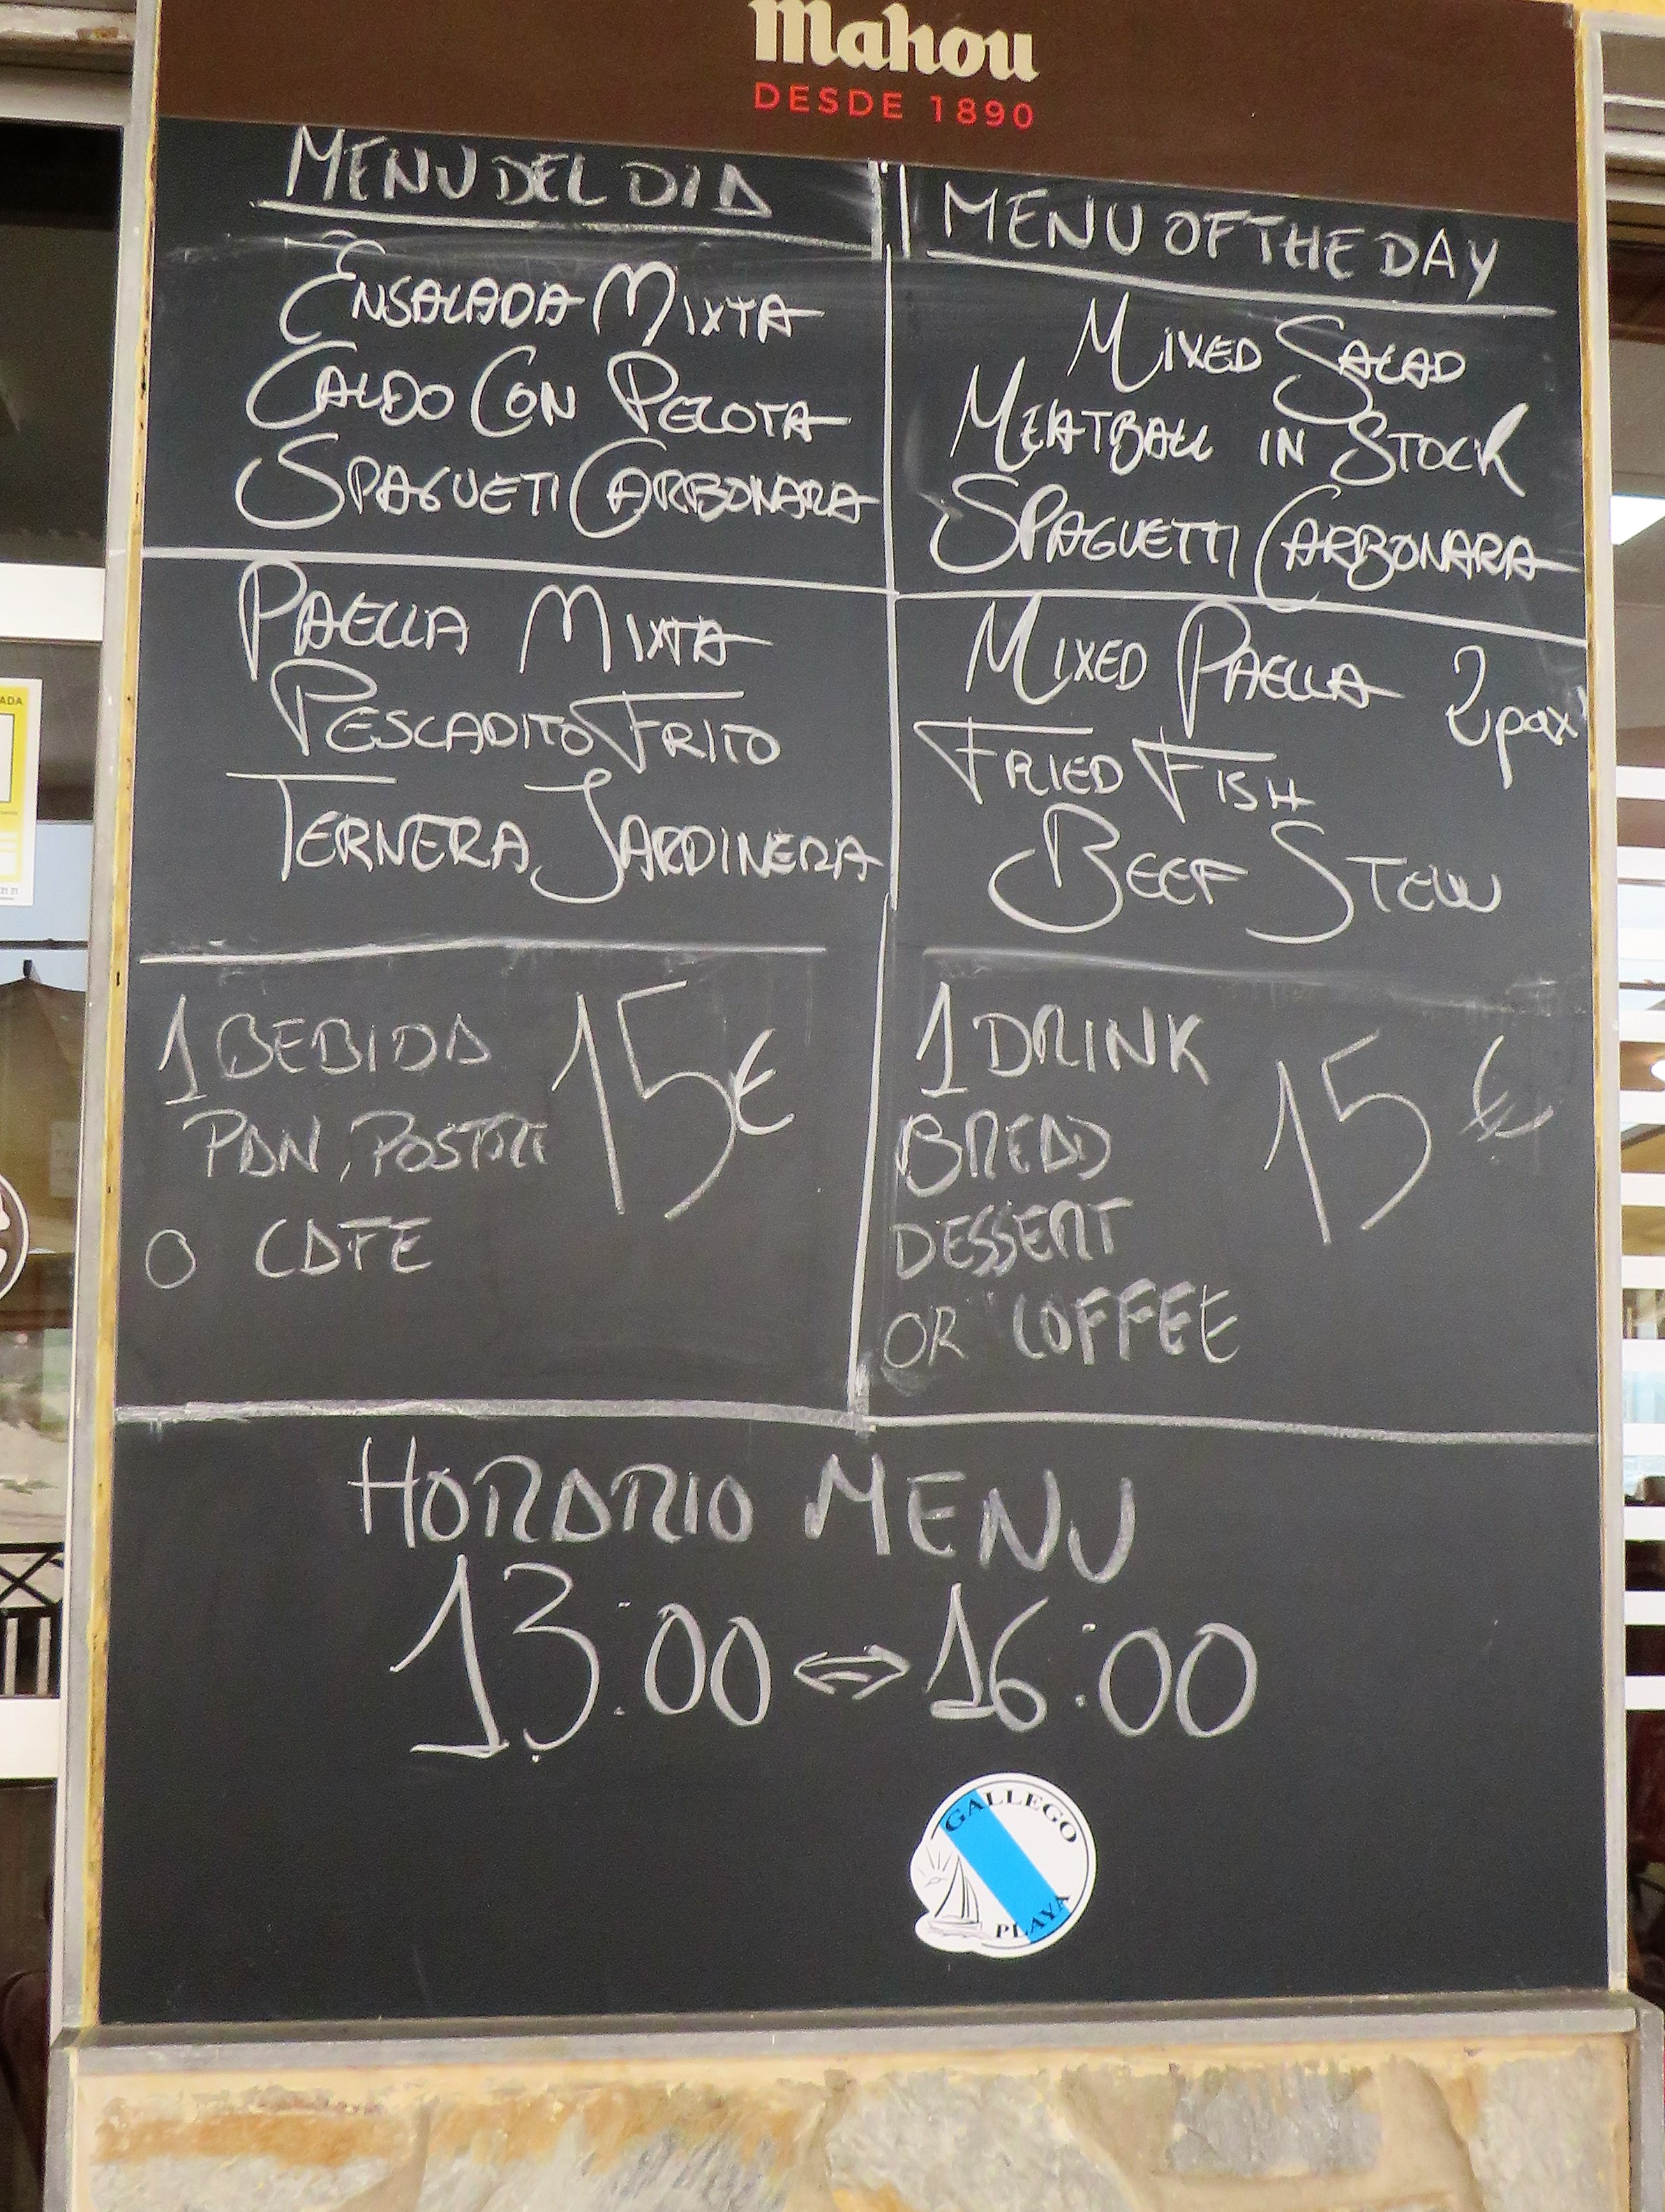 Mahou
DESDE 1890
MENU DEL DIA
ENSALADA MIXTA
CALDO CON PELOTA
SPAGUETI CARBONARA
PAELLA MIXTA
PESCADITO FRITO
TERNERA JARDINERA
1 BEBIDA
PAN, POSTRE
O CAFE
15€
MENU OF THE DAY
MIXED SALAD
MEATBALL IN STOCK
SPAGUETTI CARBONARA
MIXED PAELLA 2 pax
FRIED FISH
BEEF STEW
1 DRINK
BREAD
DESSERT
OR COFFEE
15 €
HORARIO MENU
13:00 ⇔ 16:00
GALLEGO
PLAYA
ADA